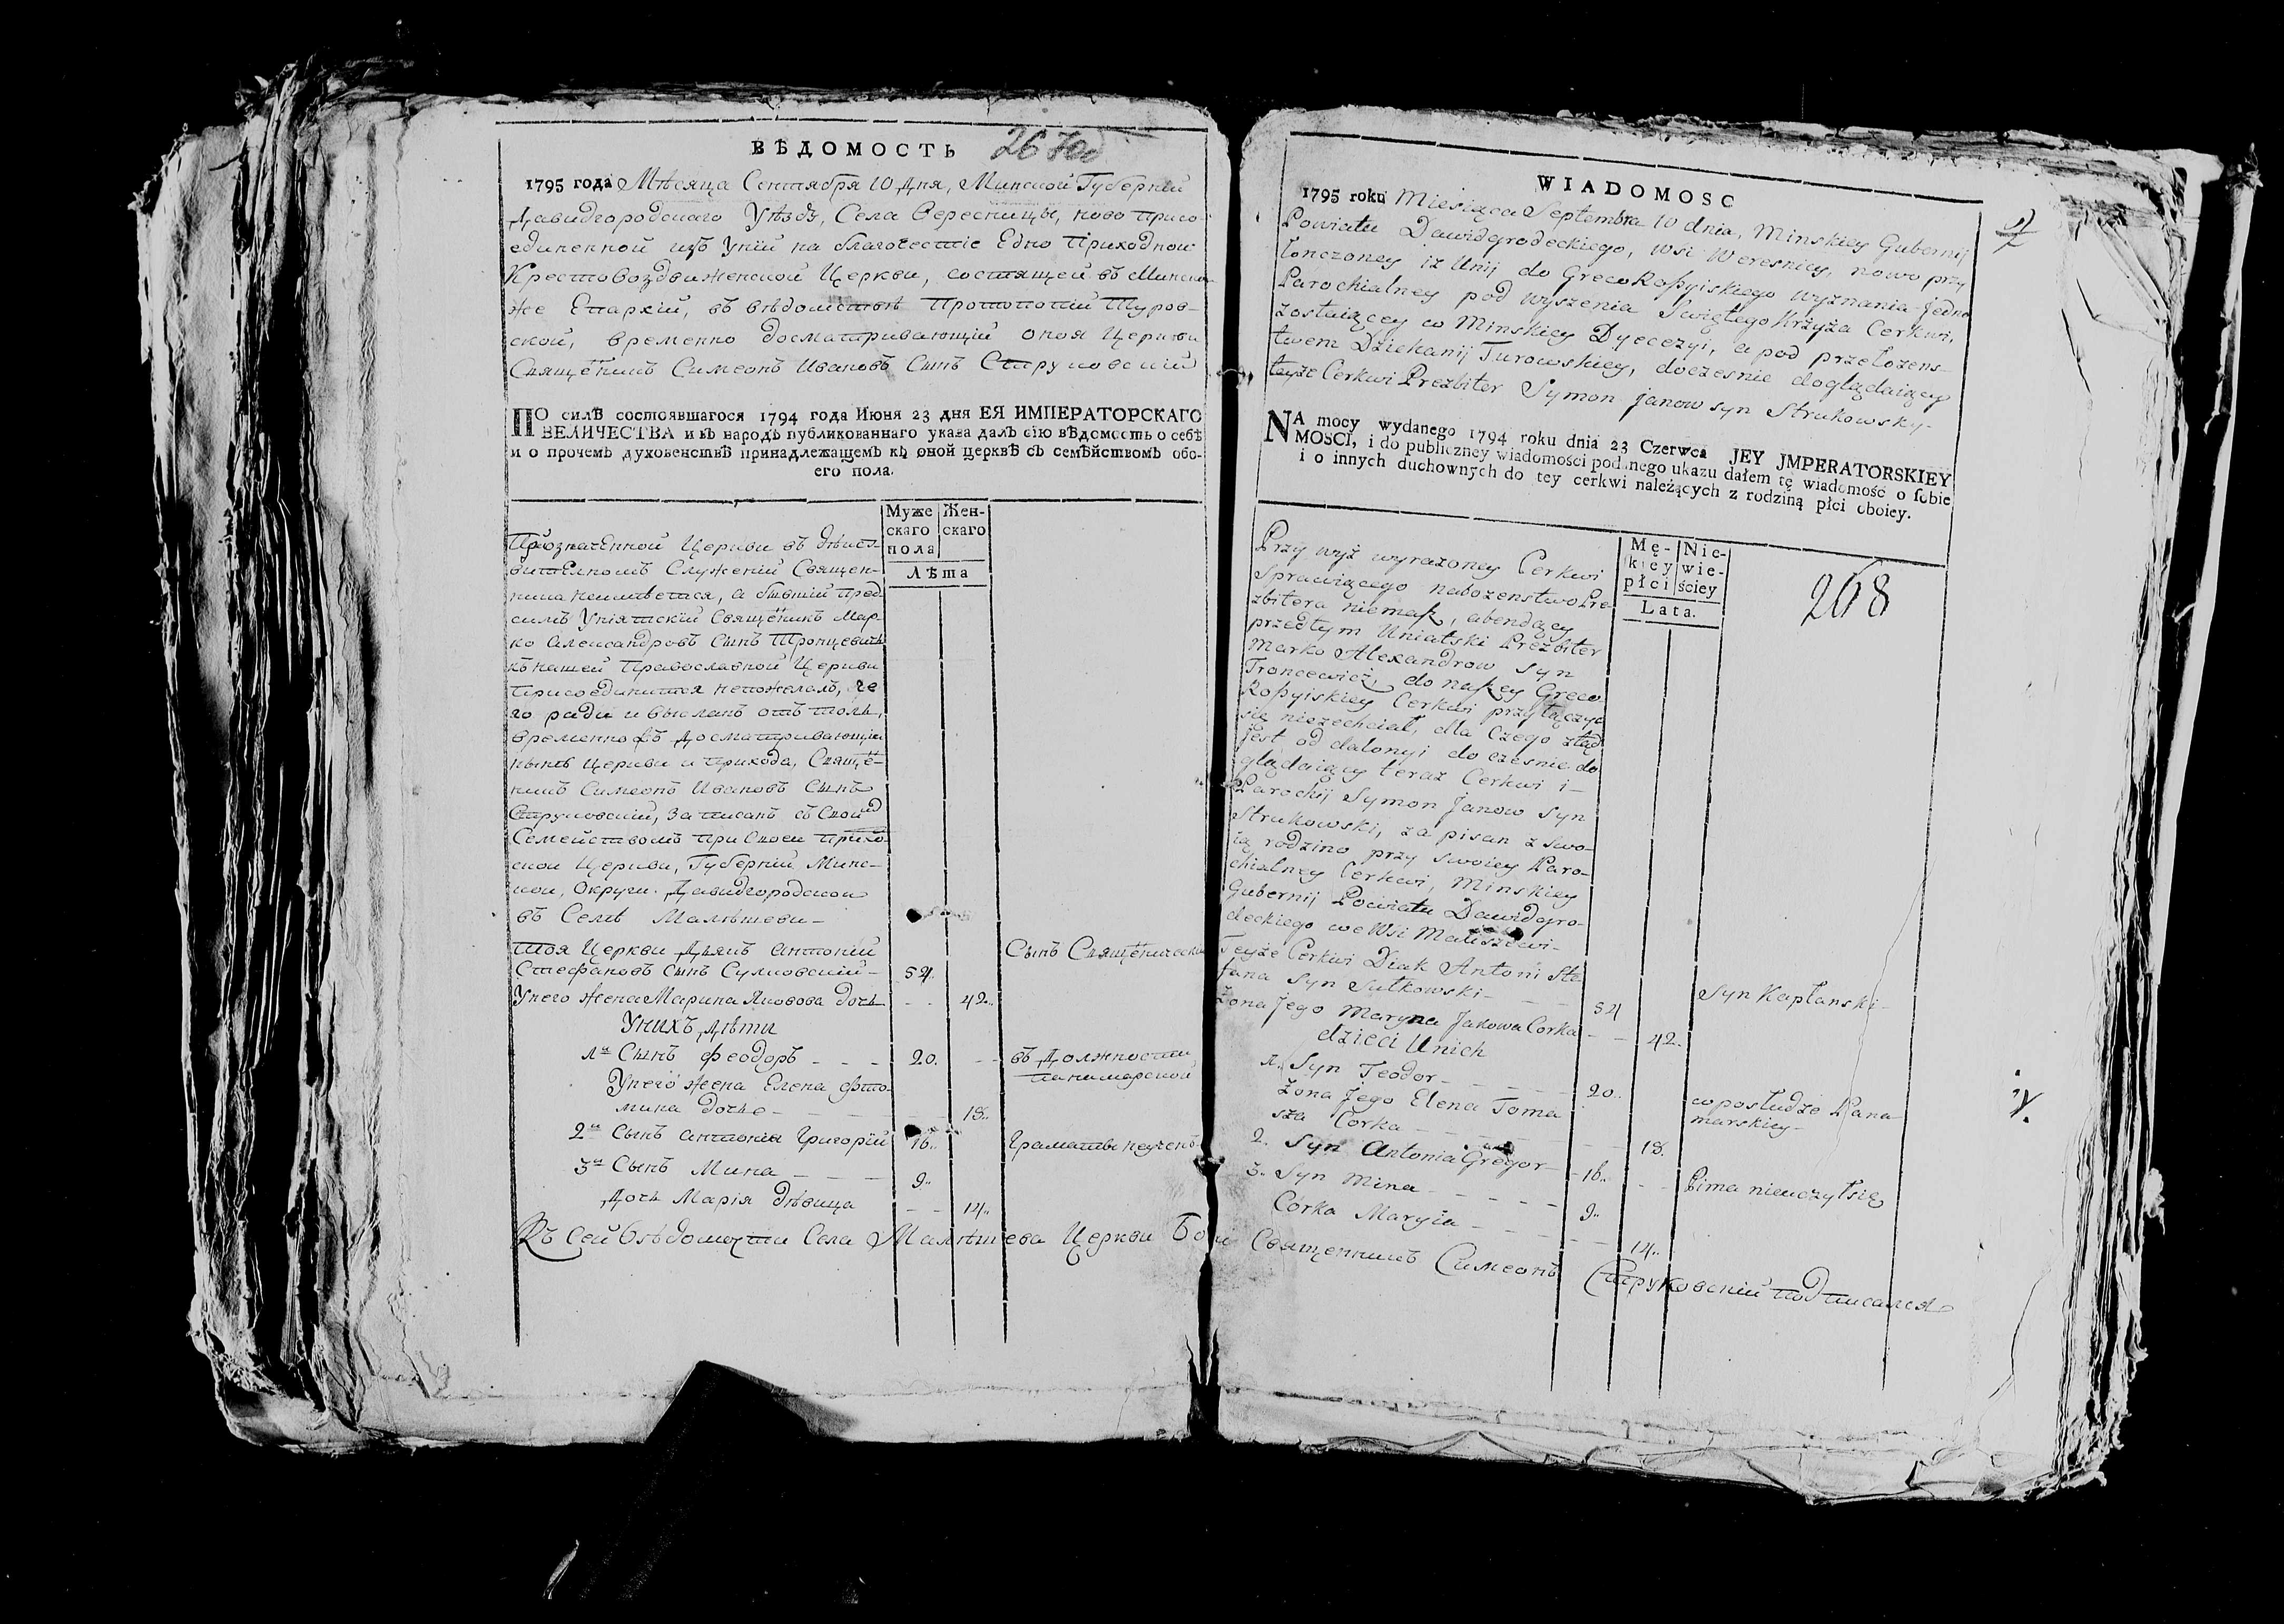 ВѢДОМОСТЬ
267об
1795 года Мѣсяца Сентября 10 дня, Минской Губерніи
Давидгородскаго Уѣзда, Села Вересницы, ново присо-
единенной изъ Уніи на благочестіе Едно Приходной
Крестовоздвиженской Церкви, состоящей въ Минской
же Епархіи, въ вѣдомствѣ Протопопіи Туров-
ской, временно досматривающій оноя Церкви
Священникъ Симеонъ Ивановъ Сынъ Струковскій
ПО силѣ состоявшагося 1794 года Июня 23 дня ЕЯ ИМПЕРАТОРСКАГО
ВЕЛИЧЕСТВА и въ народъ публикованнаго указа далъ сїю вѣдомость о себѣ
и о прочемъ духовенствѣ принадлежащемъ къ оной церквѣ съ семѣйствомъ обо-
его пола.
Муже скаго пола
Жен- скаго
Лѣта
При означенной Церкви въ дѣист-
вителномъ Служеніи Священ-
ника неимѣетися, а бывшій пред
симъ Уніятскій Священикъ Мар-
ко Александровъ Сынъ Тронцевичъ
къ нашей Православной Церкви
присоединится непожелалъ, че
го ради и высланъ отъ толь,
временно
досматривающій
нынѣ Церкви и прихода, Свяще-
никъ Симеонъ Ивановъ Сынъ
Струковскій, записанъ съ своимъ
Семействомъ при своей прихо-
ской Церкви, Губерніи Минс-
кой, Округи Давидгородской
въ Селѣ Малѣшеви-
Тоя Церкви Дьякъ Антоній
Стефановъ Сынъ Сулковскій - 54.
Сынъ Священически
Унего жена Марина Яковова дочь - - 42.
Унихъ дѣти
1й Сынъ Феодоръ - - - 20. - -
въ должности
понамарской
Унего жена Елена Фто-
мина дочь - - - - 18.
2й Сынъ Антонія Григорій 16..
Граматѣ неученъ
3й Сынъ Мина - - - 9..
Дочь Марія дѣвица - - 14..
Къ сей вѣдомости Села Малѣшева Церкви
Священникъ Симеонъ Струковскій подписался
WIADOMOSC
1795 roku Miesiąca Septembra 10 dnia, Minskiey Gubernij
Powiatu Dawidgrodeckiego, wsi Weresnicy, nowo przy
łonczoney iz Unij do GrecoRoßyiskiego wyznania Jedno
Parochialney pod wyszenia Swiętego Krzyża Cerkwi,
zostaiącey w Minskiey Dyecezyi, a pod przełożens-
twem Dziekanij Turowskiey, doczesnie doglądaiący
teyże Cerkwi Prezbiter Symon Janow syn Strukowsky-
NA mocy wydanego 1794 roku dnia 23 Czerwca JEY JMPERATORSKIEY
MOSCI, i do publiczney wiadomości podanego ukazu dałem tę wiadomość o sobie
i o innych duchownych do tey cerkwi należących z rodziną płci oboiey.
Mę- kiey płci
Nie- wie- ściey
Lata.
268
Przy wyż wyrażoney Cerkwi
Sprawiącego nabożenstwo Pre
zbitera niemaß, abendący
przedtym Uniatski Prezbiter
Marko Alexandrow syn
Troncewicz, do naßey Greco
Roßyiskiey Cerkwi przyłączyc
się niezechciał, dla czego ztąd
jest od dalony i do czesnie do
glądaiący teraz Cerkwi i -
Parochij Symon Janow syn
Strukowski, za pisan z swo-
ią rodzino przy swoiey Paro-
chialney Cerkwi, Minskiey
Gubernij Powiatu Dawidgro-
deckiego we Wsi Maliszewi-
Teyże Cerkwi Diak Antoni Ste
fana Syn Sulkowski - - - 54
Syn Kapłanski-
Żona Jego Maryna Jakowa Corka - - 42.
dzieci Unich
1. Syn Teodor - - - - 20..
w posłudze Pana-
marskiey-
żona Jego Elena Toma
sza Corka - - - - 18.
2. Syn Antonia Gregor - 16..
Pima nieuczyłsię
3. Syn Mina - - - - 9..
Córka Maryia - - - - 14..